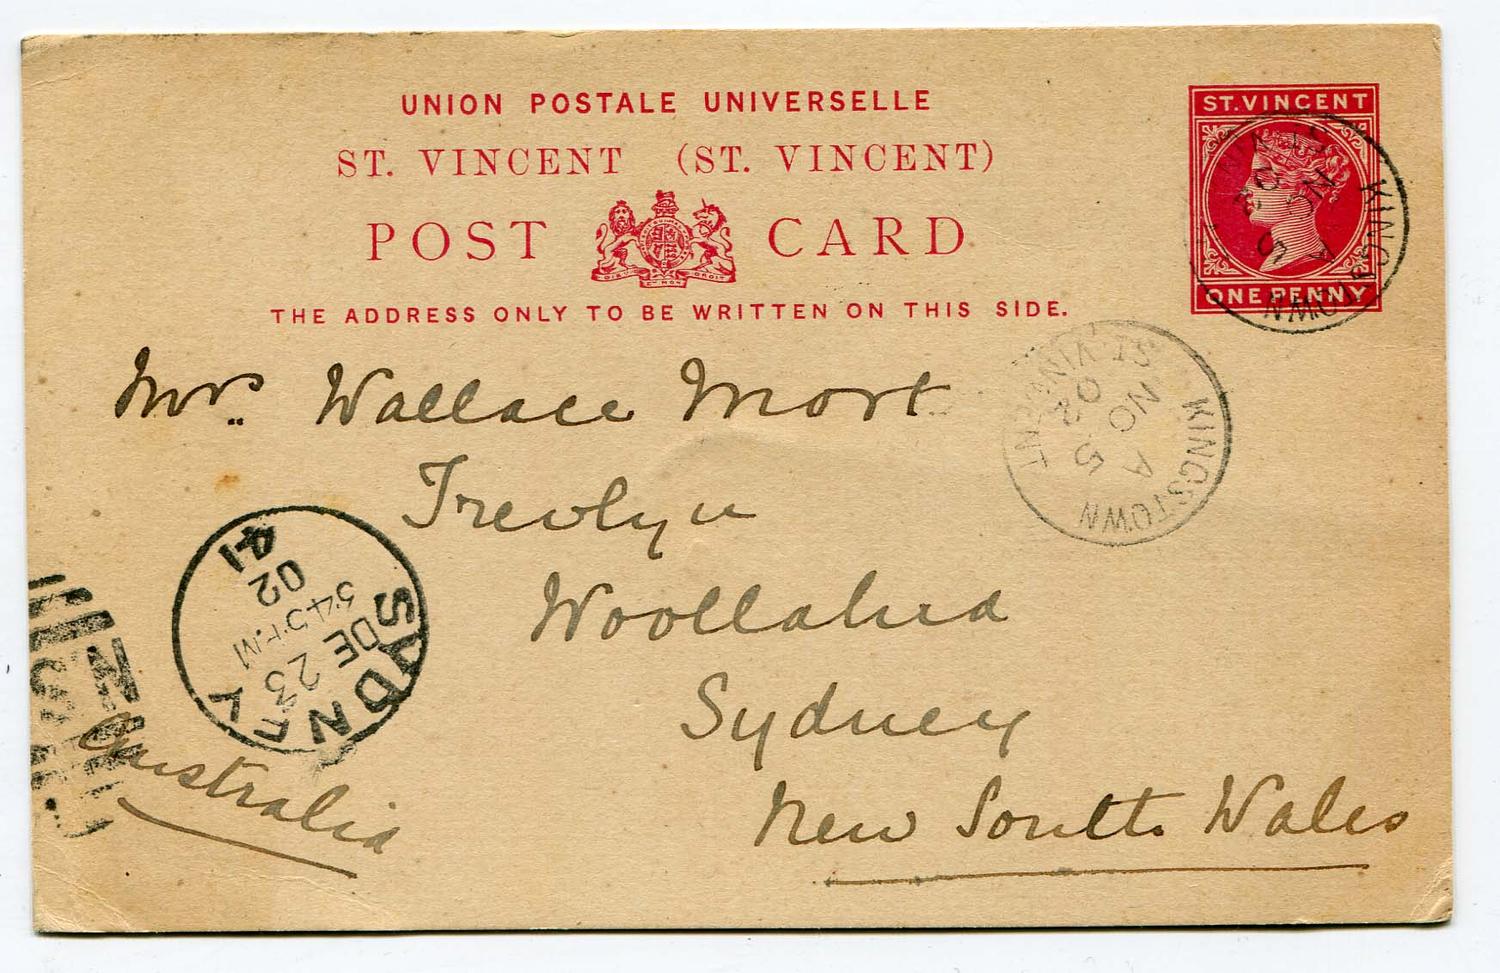 UNION POSTALE UNIVERSELLE
ST. VINCENT (ST. VINCENT)
POST CARD
DIEU ET MON DROIT
THE ADDRESS ONLY TO BE WRITTEN ON THIS SIDE.
ST. VINCENT
ONE PENNY
KINGSTOWN
ST. VIN
A
NO 5
02
KINGSTOWN
ST. VINCENT
A
NO 5
02
Mrs. Wallace Mort
Trevlyn
Woollahra
Sydney
New South Wales
Australia
SYDNEY
DE 23
02
41